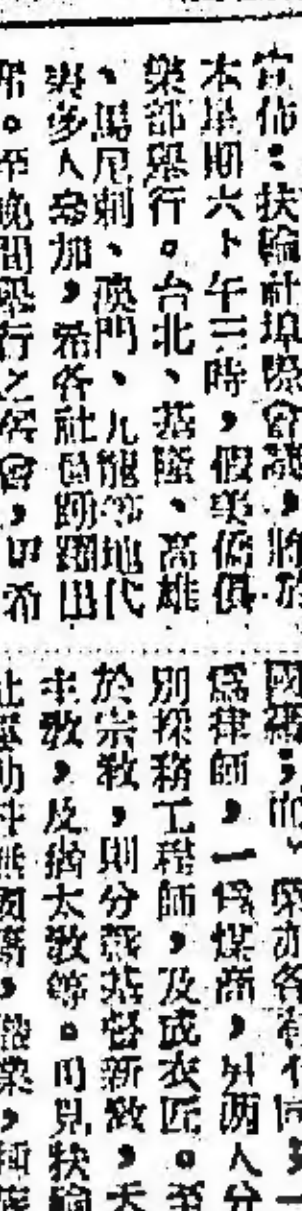 宣佈：扶輪社埠際會議，將於
本星期六下午三時，假美僑俱
樂部舉行。台北、基隆、高雄
、馬尼剌、澳門、九龍等地代
表多人參加，希各社員踴躍出
席。至晚間舉行之宴會，切希
國籍；而 業亦各有不同，一
爲律師，一爲煤商，另兩人分
別採務工程師，及成衣匠。至
於宗教，則分爲基督新教，天
主教，及猶太教等。可見扶輪
社運動 無國籍，職業，種族